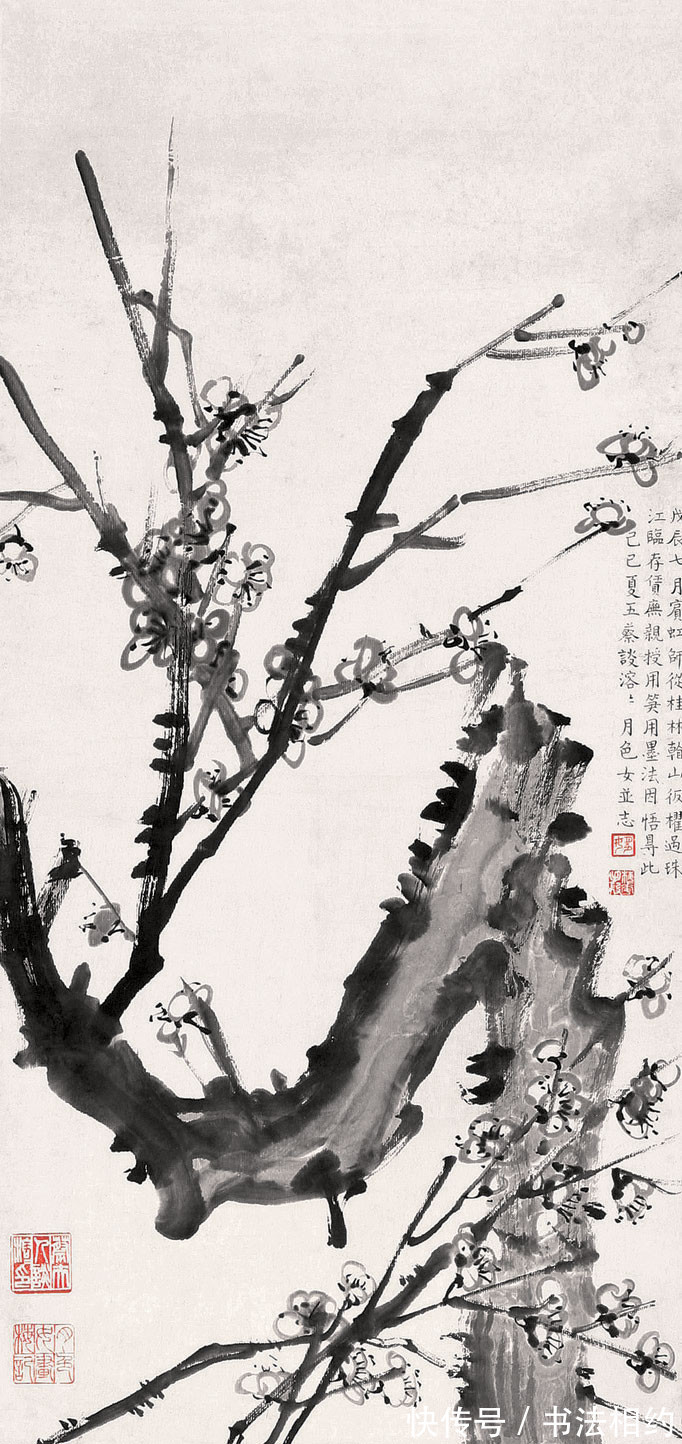 戊辰七月賓虹師從桂林山仮櫂過珠
江臨存賃廡親授用筆用墨法因悟㝵此
己巳夏五蔡談溶〻月色女並志
快传号 / 书法相约